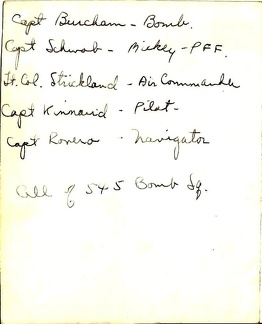 Capt Burcham - Bomb.
Capt Schwab - Mickey - PFF.
Lt. Col. Strickland - Air Commander
Capt Kinnaird - Pilot -
Capt Romero - Navigator
All of 545 Bomb Sq.